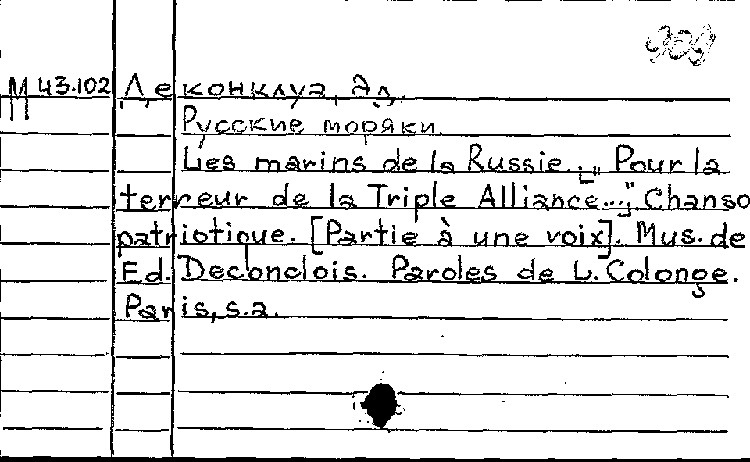 909
М 43.102 Деконклуа, Эд.
Русские моряки
Les marins de la Russie. ["Pour la
terreur de la Triple Alliance..."] Chanso
patriotique. [Partie à une voix]. Mus. de
Ed. Deconclois. Paroles de L. Colonge.
Paris, s.a.